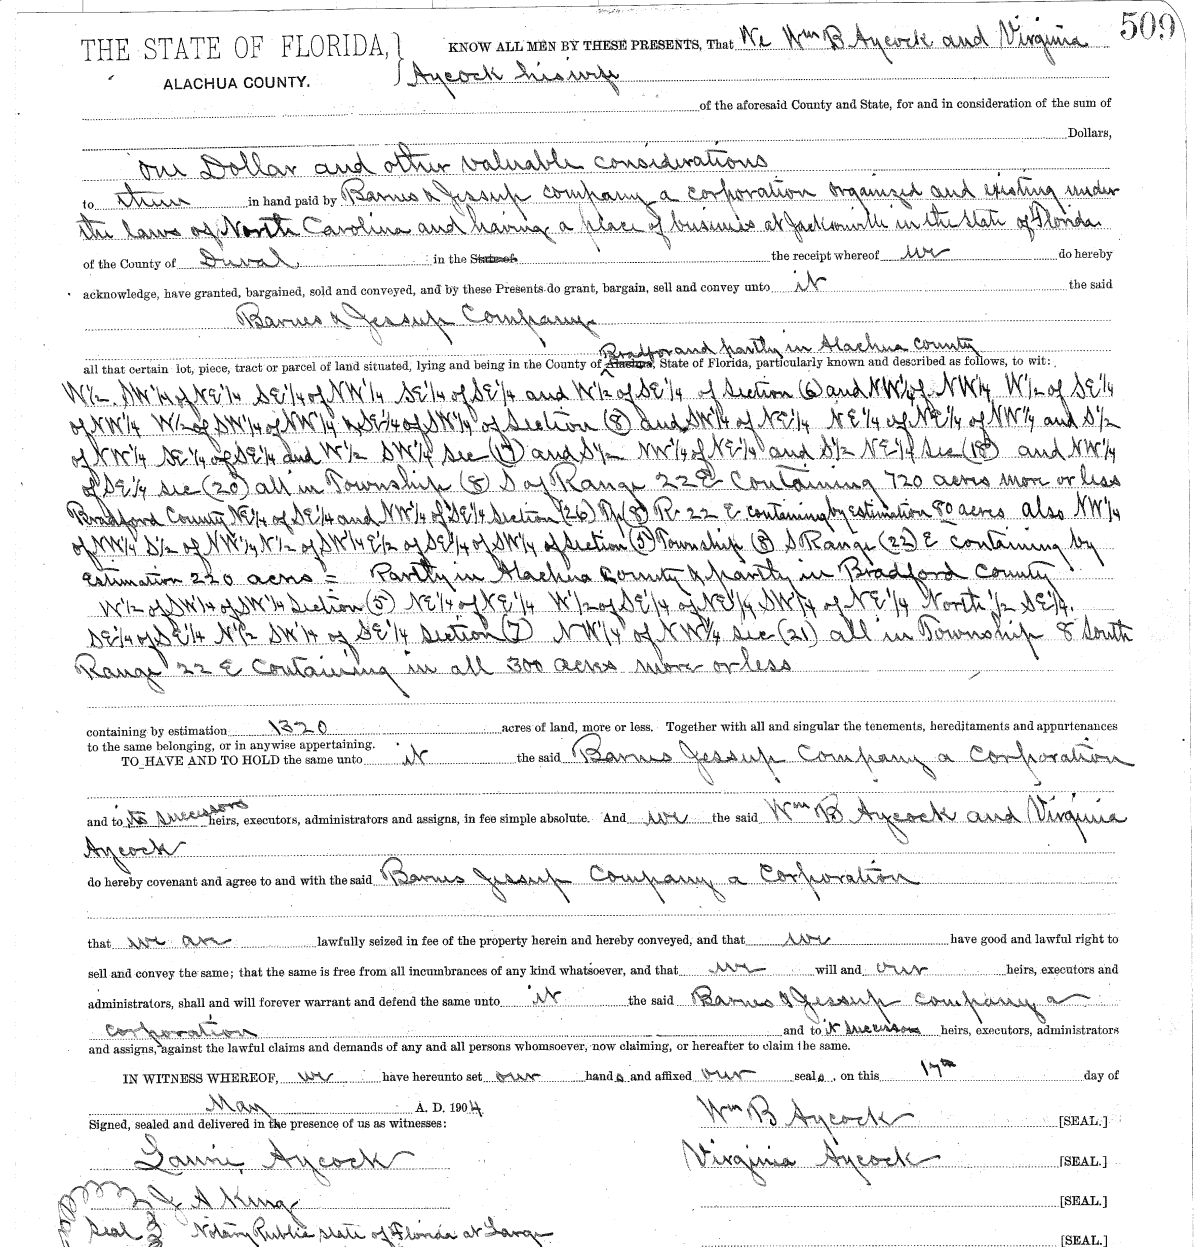 509
THE STATE OF FLORIDA, } KNOW ALL MEN BY THESE PRESENTS, That We Wm B Aycock and Virginia
ALACHUA COUNTY. Aycock his wife
of the aforesaid County and State, for and in consideration of the sum of
Dollars,
One Dollar and other valuable considerations
to them in hand paid by Barnes & Jessup Company a corporation organized and existing under
the laws of North Carolina and having a place of business at Jacksonville in the State of Florida
of the County of Duval in the State of the receipt whereof we do hereby
acknowledge, have granted, bargained, sold and conveyed, and by these Presents do grant, bargain, sell and convey unto it the said
Barnes & Jessup Company
Bradford and partly in Alachua County
all that certain lot, piece, tract or parcel of land situated, lying and being in the County of Alachua, State of Florida, particularly known and described as follows, to wit:
W½ NW¼ of NE¼ SE¼ of NW¼ SE¼ of SE¼ and W½ of SE¼ of Section (6) and NW¼ of NW¼ W½ of SE¼
of NW¼ W½ of SW¼ of NW¼ & SE¼ of SW¼ of Section (8) and SW¼ of NE¼ NE¼ of NE¼ of NW¼ and S½
of NW¼ SE¼ of SE¼ and W½ SW¼ Sec (17) and S½ NW¼ of NE¼ and S½ NE¼ Sec (18) and NW¼
of SE¼ Sec (20) all in Township (8) S of Range 22 E Containing 720 acres more or less
Bradford County NE¼ of SE¼ and NW¼ of SE¼ Section (26) Tp (8) R 22 E containing by estimation 80 acres also NW¼
of NW¼ S½ of NW¼ N½ of SW¼ E½ of SE¼ of SW¼ of Section (5) Township (8) S Range (22) E containing by
Estimation 220 acres = Partly in Alachua County & partly in Bradford County
W½ of SW¼ of SW¼ Section (5) NE¼ of NE¼ W½ of SE¼ of NE¼ SW¼ of NE¼ North ½ SE¼.
SE¼ of SE¼ N½ SW¼ of SE¼ Section (7) NW¼ of NW¼ Sec (21) all in Township 8 South
Range 22 E Containing in all 300 acres more or less
containing by estimation 1320 acres of land, more or less. Together with all and singular the tenements, hereditaments and appurtenances
to the same belonging, or in anywise appertaining.
TO HAVE AND TO HOLD the same unto it the said Barnes Jessup Company a Corporation
and to its successors heirs, executors, administrators and assigns, in fee simple absolute. And we the said Wm B Aycock and Virginia
Aycock
do hereby covenant and agree to and with the said Barnes Jessup Company a Corporation
that we are lawfully seized in fee of the property herein and hereby conveyed, and that we have good and lawful right to
sell and convey the same; that the same is free from all incumbrances of any kind whatsoever, and that we will and our heirs, executors and
administrators, shall and will forever warrant and defend the same unto it the said Barnes & Jessup Company a
corporation and to it successors heirs, executors, administrators
and assigns, against the lawful claims and demands of any and all persons whomsoever, now claiming, or hereafter to claim the same.
IN WITNESS WHEREOF, we have hereunto set our hands and affixed our seals, on this 17th day of
May A. D. 1904 Wm B Aycock [SEAL.]
Signed, sealed and delivered in the presence of us as witnesses:
Laurie Aycock Virginia Aycock [SEAL.]
J A King [SEAL.]
Seal Notary Public State of Florida at Large [SEAL.]